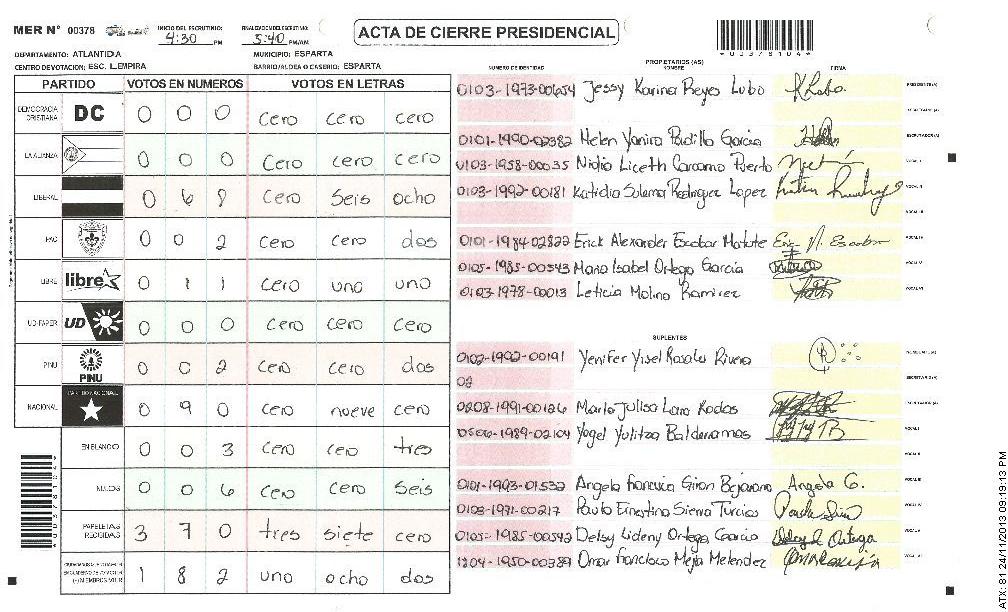 MER Nº 00378 INICIO DEL ESCRUTINIO: 4:30 PM FINALIZACION DEL ESCRUTINIO: 5:40 PM/AM
ACTA DE CIERRE PRESIDENCIAL
00378104
DEPARTAMENTO: ATLANTIDA MUNICIPIO: ESPARTA
CENTRO DE VOTACION: ESC. L.EMPIRA BARRIO/ALDEA O CASERIO: ESPARTA
PARTIDO VOTOS EN NUMEROS VOTOS EN LETRAS
DEMOCRACIA CRISTIANA DC 0 0 0 cero cero cero
LA ALIANZA 0 0 0 cero cero cero
LIBERAL 0 6 8 cero seis ocho
PAC 0 0 2 cero cero dos
LIBRE libre 0 1 1 cero uno uno
UD-FAPER UD 0 0 0 cero cero cero
PINU PINU 0 0 2 cero cero dos
NACIONAL PARTIDO NACIONAL 0 9 0 cero nueve cero
EN BLANCO 0 0 3 cero cero tres
NULOS 0 0 6 cero cero seis
PAPELETAS RECIBIDAS 3 7 0 tres siete cero
1 8 2 uno ocho dos
NUMERO DE IDENTIDAD PROPIETARIOS (AS) NOMBRE FIRMA
0103-1973-00654 Jessy Karina Reyes Lobo PRESIDENTE(A)
SECRETARIO (A)
0101-1990-02382 Helen Yanira Padilla Garcia ESCRUTADOR(A)
0103-1958-00035 Nidia Liceth Carcamo Puerto VOCAL I
0103-1992-00181 Katidia Sulema Rodriguez Lopez VOCAL II
VOCAL III
0101-1984-02822 Erick Alexander Escobar Matute VOCAL IV
0105-1985-00543 Maria Isabel Ortega Garcia VOCAL V
0103-1978-00013 Leticia Molina Ramirez VOCAL VI
SUPLENTES
0102-1992-00191 Yenifer Yisel Rosales Rivera PRESIDENTE(A)
02 SECRETARIO (A)
0208-1991-00126 Maria Julisa Lara Rodas ESCRUTADOR(A)
0506-1989-02104 Yogel Yulitza Balderramos VOCAL I
VOCAL II
0101-1993-01532 Angela Francisca Giron Bejarano Angela G. VOCAL III
0103-1971-00217 Paula Ernestina Sierra Turcios VOCAL IV
0105-1985-00542 Delsy Lideny Ortega Garcia Delsy L Ortega VOCAL V
1804-1950-00389 Omar Francisco Mejia Melendez VOCAL VI
ATX: 81 24/11/2013 09:19:13 PM